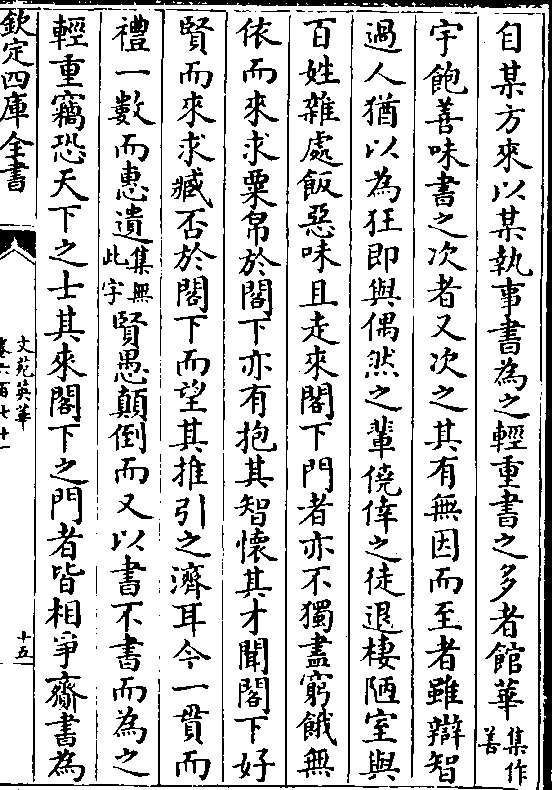 自某方來以某執事書為之輕重書之多者館華集作善
宇飽善味書之次者又次之其有無因而至者雖辯智
過人猶以為狂即與偶然之輩僥倖之徒退棲陋室與
百姓雜處飯惡味且走來閣下門者亦不獨盡窮餓無
依而來求粟帛於閣下亦有抱其智懷其才聞閣下好
賢而來求臧否於閣下而望其推引之濟耳今一貫而
禮一數而惠遺集無此字賢愚顛倒而又以書不書而為之
輕重竊恐天下之士其來閣下之門者皆相爭齎書為
欽定四庫全書
文苑英華
卷六百七十一
十五